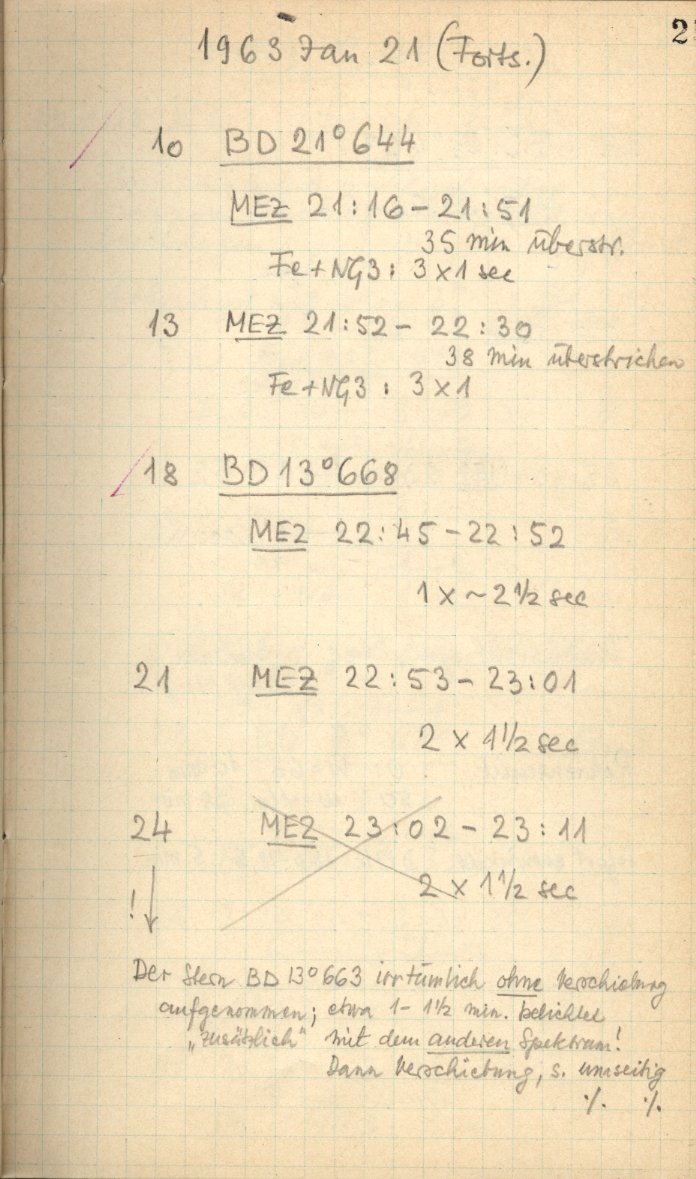 2
1963 Jan 21 (Forts.)
10 BD 21° 644
MEZ 21:16 – 21:51
35 min überstr.
Fe+NG3: 3 x 1 sec
13 MEZ 21:52 – 22:30
38 min überstrichen
Fe+NG3: 3 x 1
18 BD 13° 668
MEZ 22:45 – 22:52
1 x ~ 2 1/2 sec
21 MEZ 22:53 – 23:01
2 x 1 1/2 sec
24 MEZ 23:02 – 23:11
2 x 1 1/2 sec
!
Der Stern BD 13° 663 irrtümlich ohne Verschiebung
aufgenommen; etwa 1 – 1 1/2 min. belichtet
„zusätzlich" mit dem anderen Spektrum!
Dann Verschiebung, s. umseitig
·/. ·/.